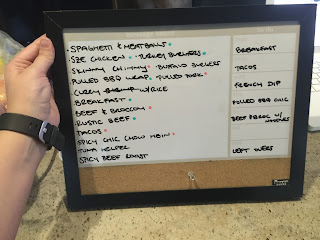 · SPAGHETTI & MEATBALLS ·
SZE CHICKEN · TURKEY BURGERS ·
SKINNY CHIMMY · BUFFALO BURGERS
PULLED BBQ WRAP · PULLED PORK ·
CURRY SHRIMP W/RICE
BREAKFAST ·
BEEF & BROCCOLI ·
RUSTIC BEEF ·
TACOS ·
SPICY CHIC CHOW MEIN ·
TUNA HELPER
SPICY BEEF ROAST
BREAKFAST
TACOS
FRENCH DIP
PULLED BBQ CHIC
BEEF & BROC W/
NOODLES
LEFT OVERS